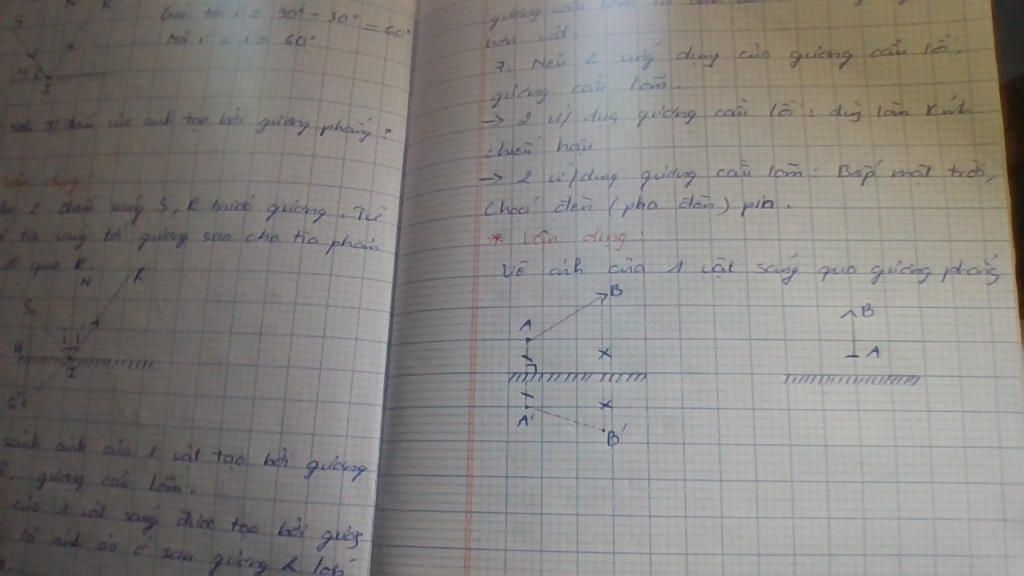 S N R
Góc tới i = 90° - 30° = 60°
Mà i' = i = 60°
I
của ảnh tạo bởi gương phẳng?
vận dụng:
2 điểm sáng S, R trước gương. Từ
tia sáng tới gương sao cho tia phản
qua R
N R
S
H I
S'
sánh ảnh của 1 vật tạo bởi gương
gương cầu lõm.
của 1 vật sáng được tạo bởi gương
là ảnh ảo ở sau gương &
gương cầu lõm
hơn vật.
7. Nêu 2 ứng dụng của gương cầu lồi,
gương cầu lõm.
→ 2 ứ/dụng gương cầu lồi: dùng làm kính
chiếu hậu
→ 2 ứ/dụng gương cầu lõm: Bếp mặt trời,
choá đèn (pha đèn) pin.
* Vận dụng:
Vẽ ảnh của 1 vật sáng qua gương phẳng
B
A
A'
B'
B
A